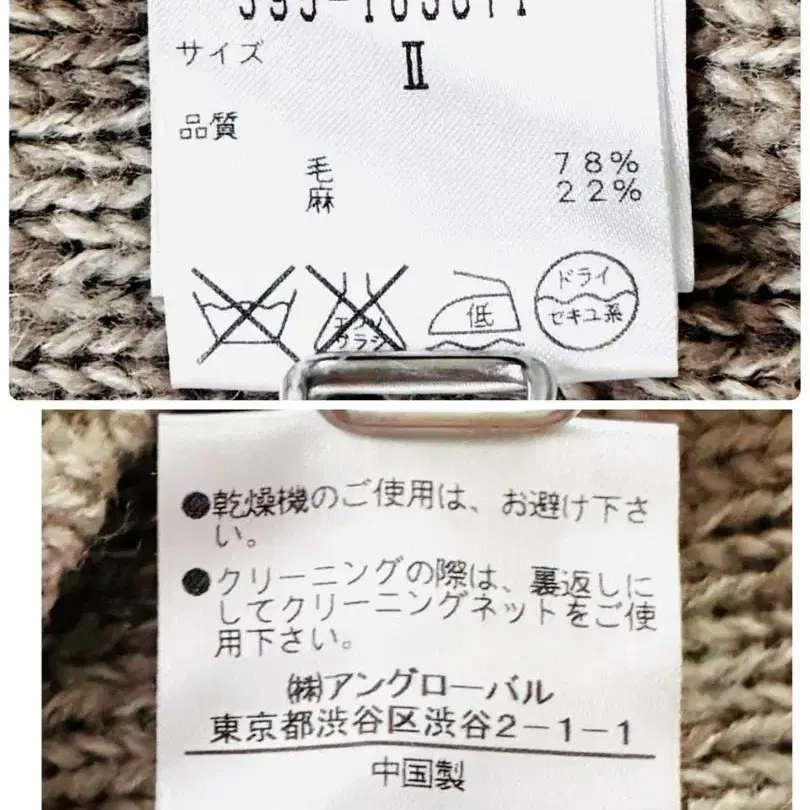 サイズ
Ⅱ
品質
毛 78%
麻 22%
エンソ
サラシ
低
ドライ
セキユ系
●乾燥機のご使用は、お避け下さ
い。
●クリーニングの際は、裏返しに
してクリーニングネットをご使
用下さい。
㈱アングローバル
東京都渋谷区渋谷2-1-1
中国製